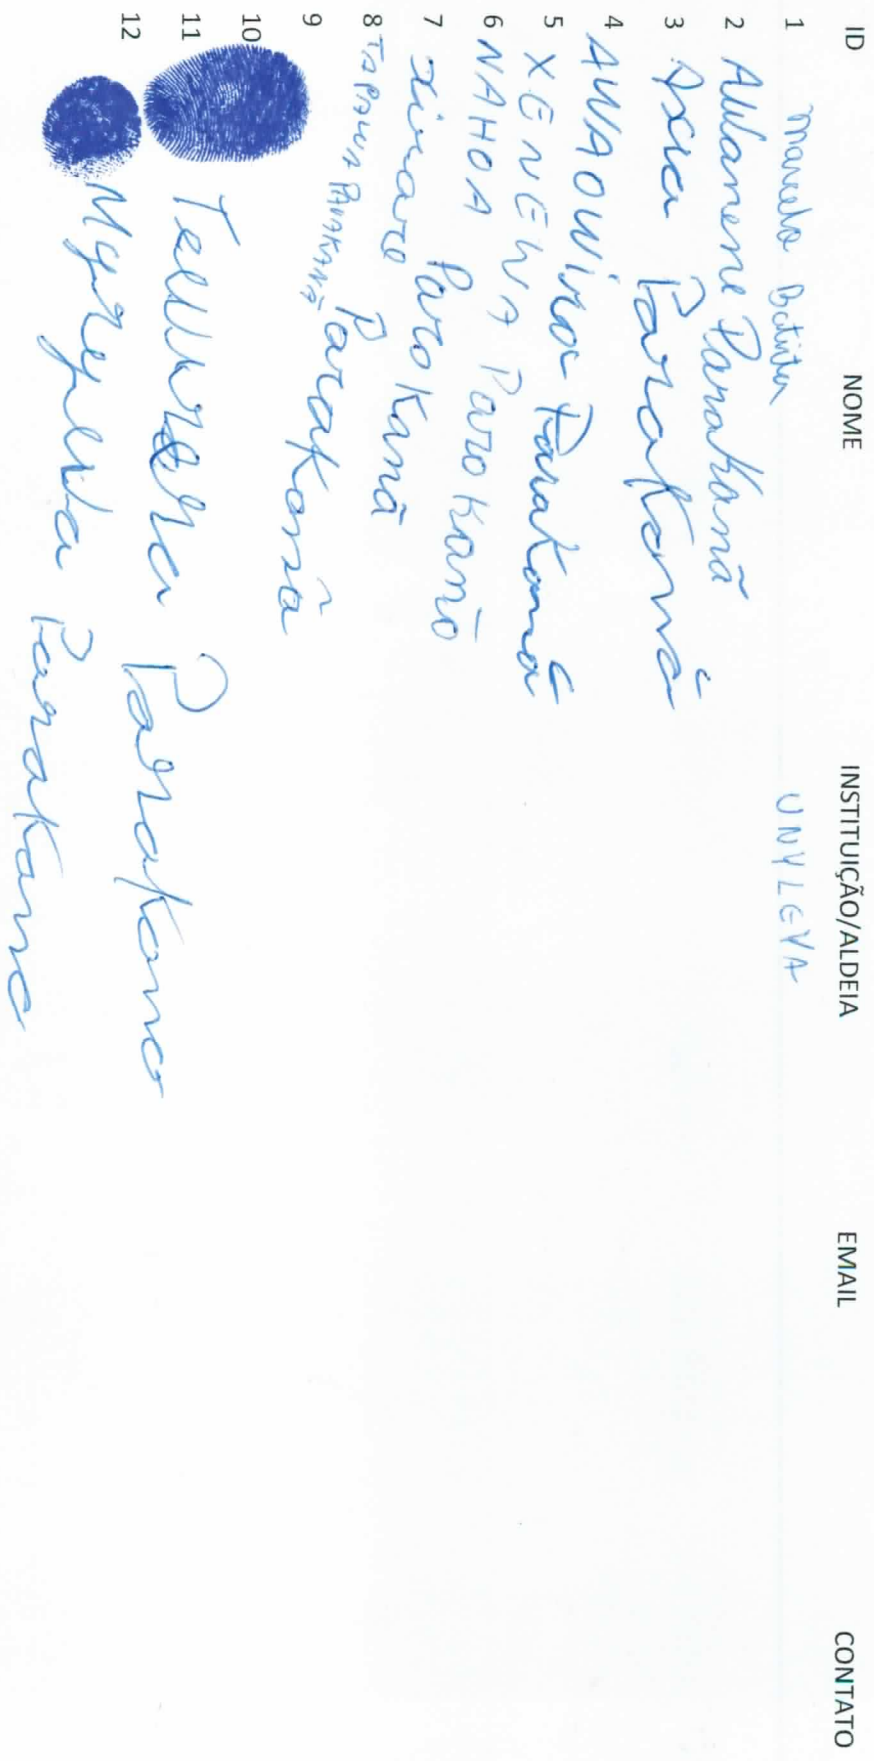 ID NOME INSTITUIÇÃO/ALDEIA EMAIL CONTATO
1 Marcelo Batista UNYLEYA
2 AWamene Parakanã
3 Axia Parakanã
4 AWAOWira Parakanã
5 XENEWA Parakanã
6 NAHOA Parakanã
7 Parakanã
8 PARAKANÃ
9 Parakanã
10
11 Parakano
12 Parakano